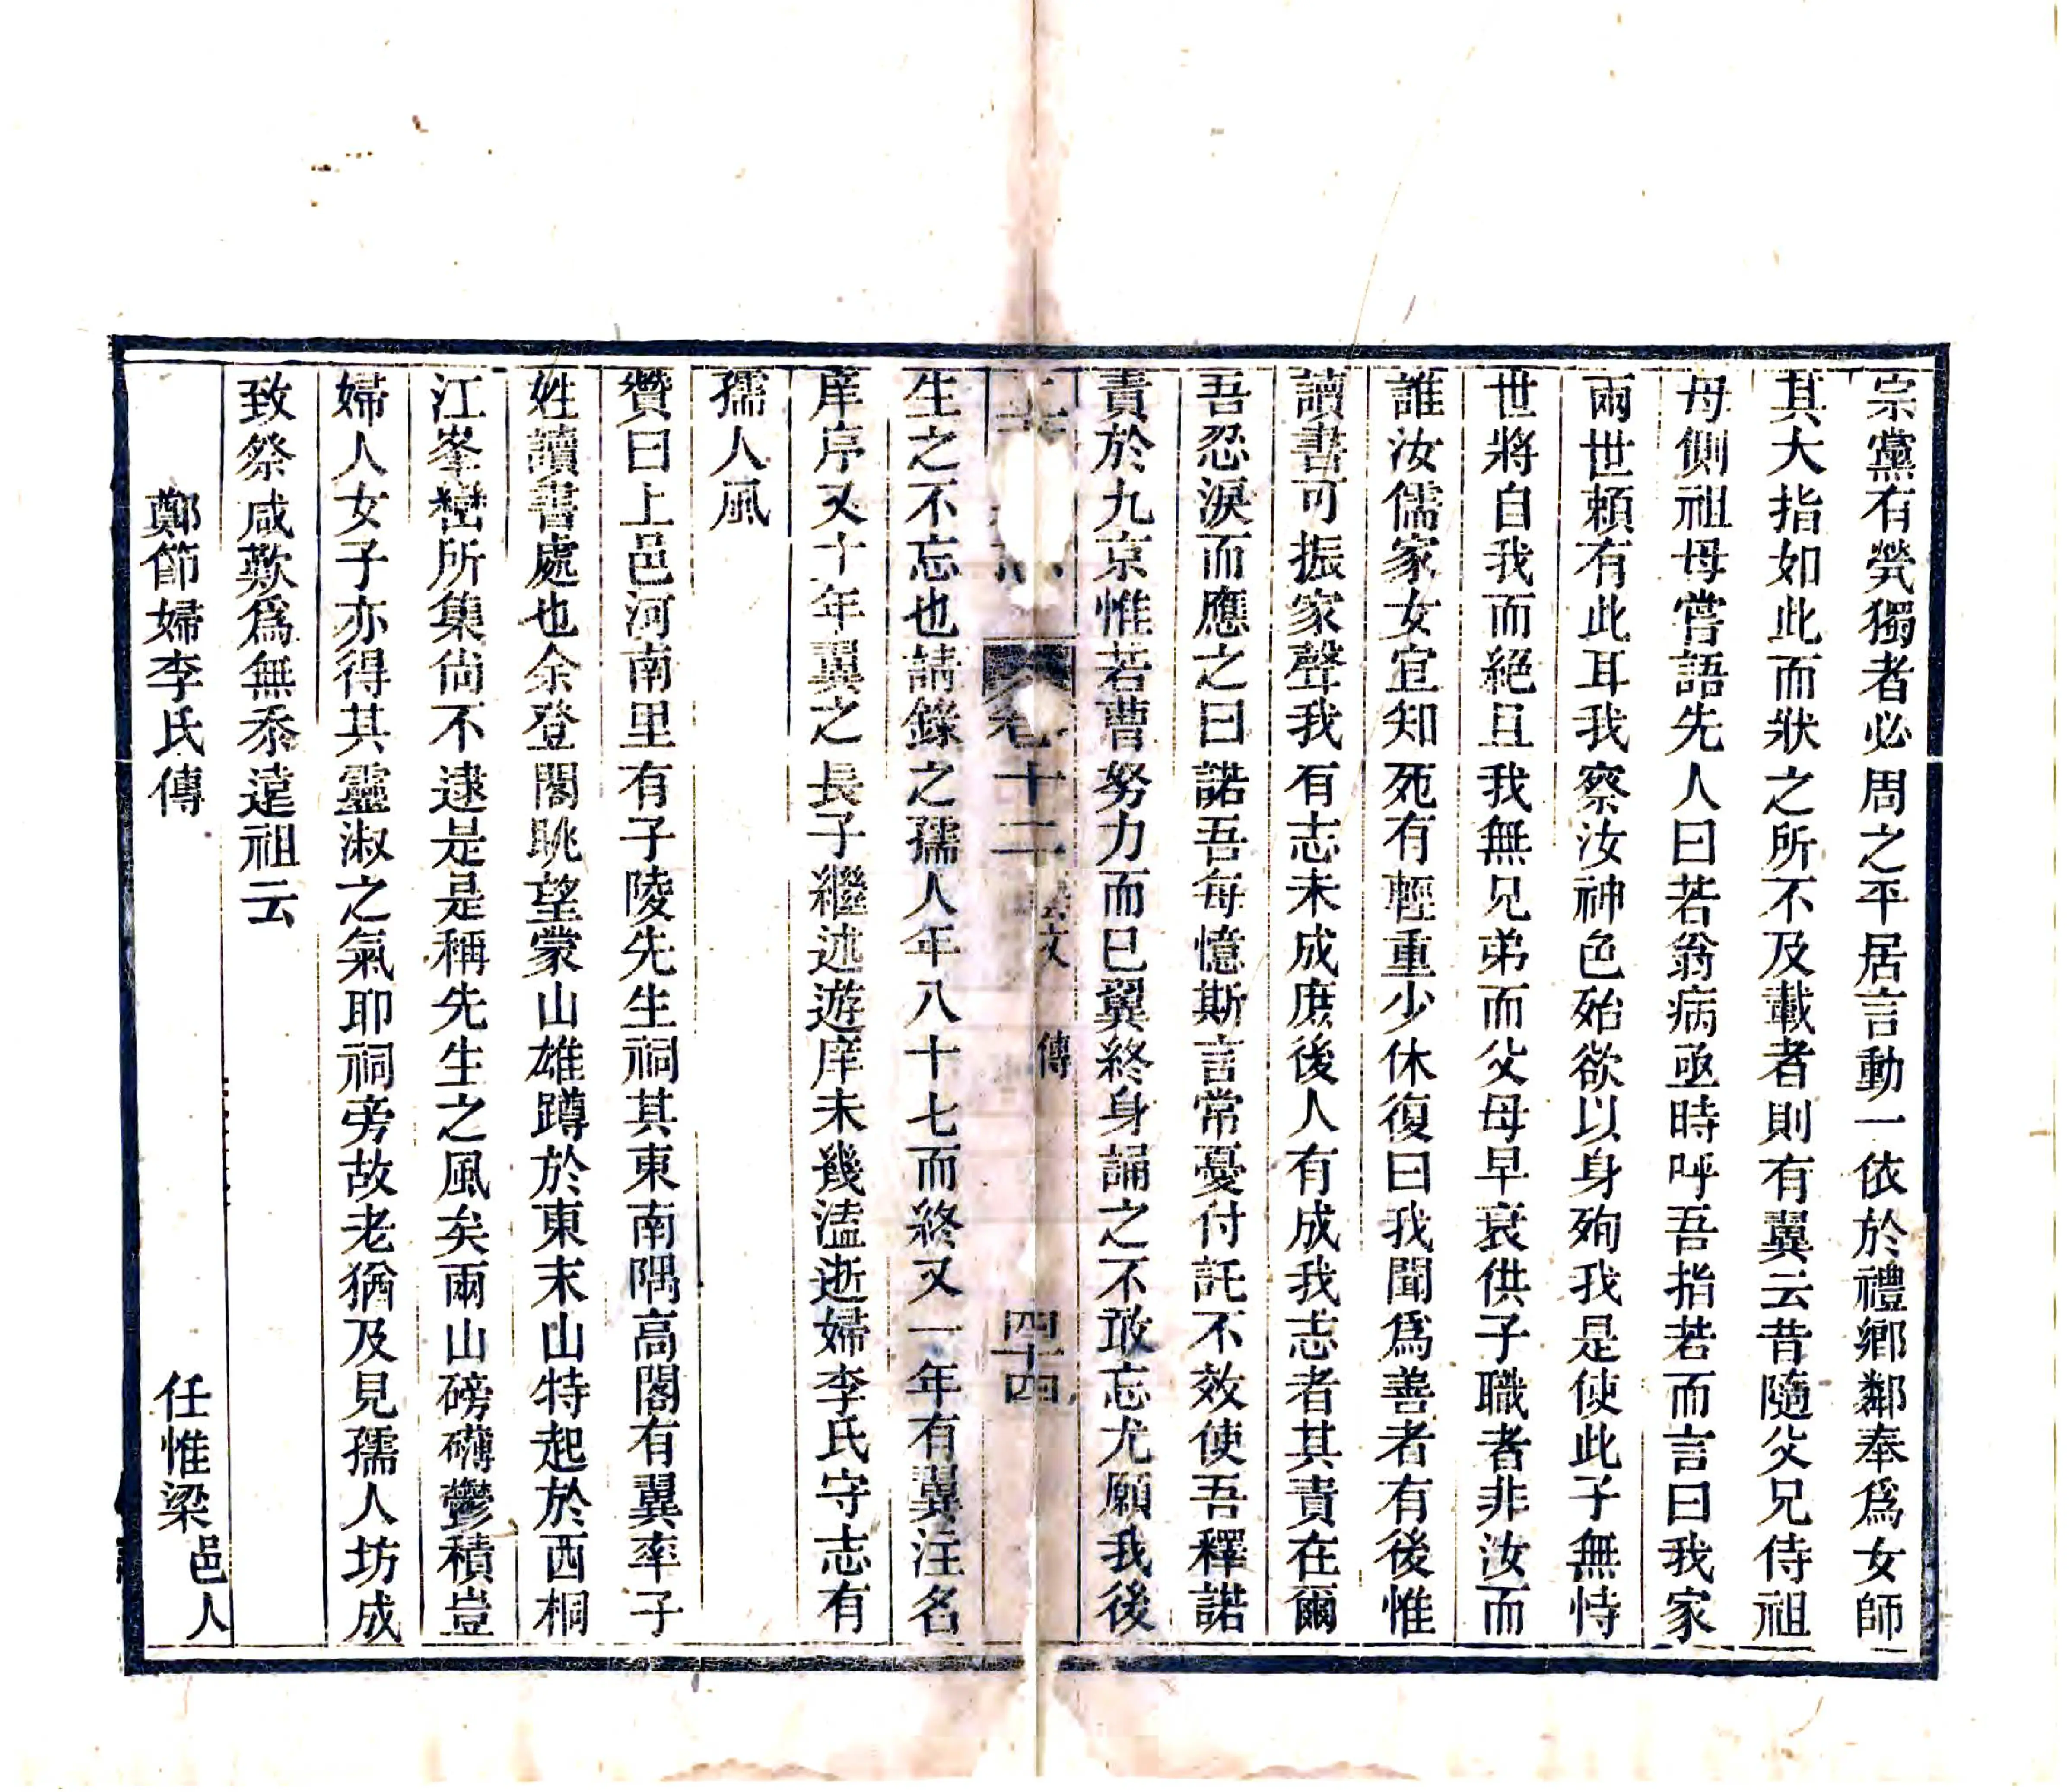 宗黨有煢獨者必周之平居言動一依於禮鄉鄰奉爲女師
其大指如此而狀之所不及載者則有翼云昔隨父兄侍祖
母側祖母嘗語先人曰若翁病亟時呼吾指若而言曰我家
兩世頼有此耳我察汝神色殆欲以身殉我是使此子無恃
世將自我而絕且我無兄弟而父母早衰供子職者非汝而
誰汝儒家女宜知死有輕重少休復曰我聞爲善者有後惟
讀書可振家聲我有志未成庶後人有成我志者其責在爾
吾忍淚而應之曰諾吾每憶斯言常憂付託不效使吾釋諾
責於九京惟若曹努力而已翼終身誦之不敢忘尤願我後
卷十二 藝文 傳 四十四
生之不忘也請錄之孺人年八十七而終又一年有翼注名
庠序又十年翼之長子繼述遊庠未幾溘逝婦李氏守志有
孺人風
贊曰上邑河南里有子陵先生祠其東南隅高閣有翼率子
姓讀書處也余登閣眺望蒙山雄蹲於東末山特起於西桐
江峯巒所集尙不逮是是稱先生之風矣兩山磅礴鬱積豈
婦人女子亦得其靈淑之氣耶祠旁故老猶及見孺人坊成
致祭咸歎爲無忝遠祖云
鄭節婦李氏傳 任惟梁邑人